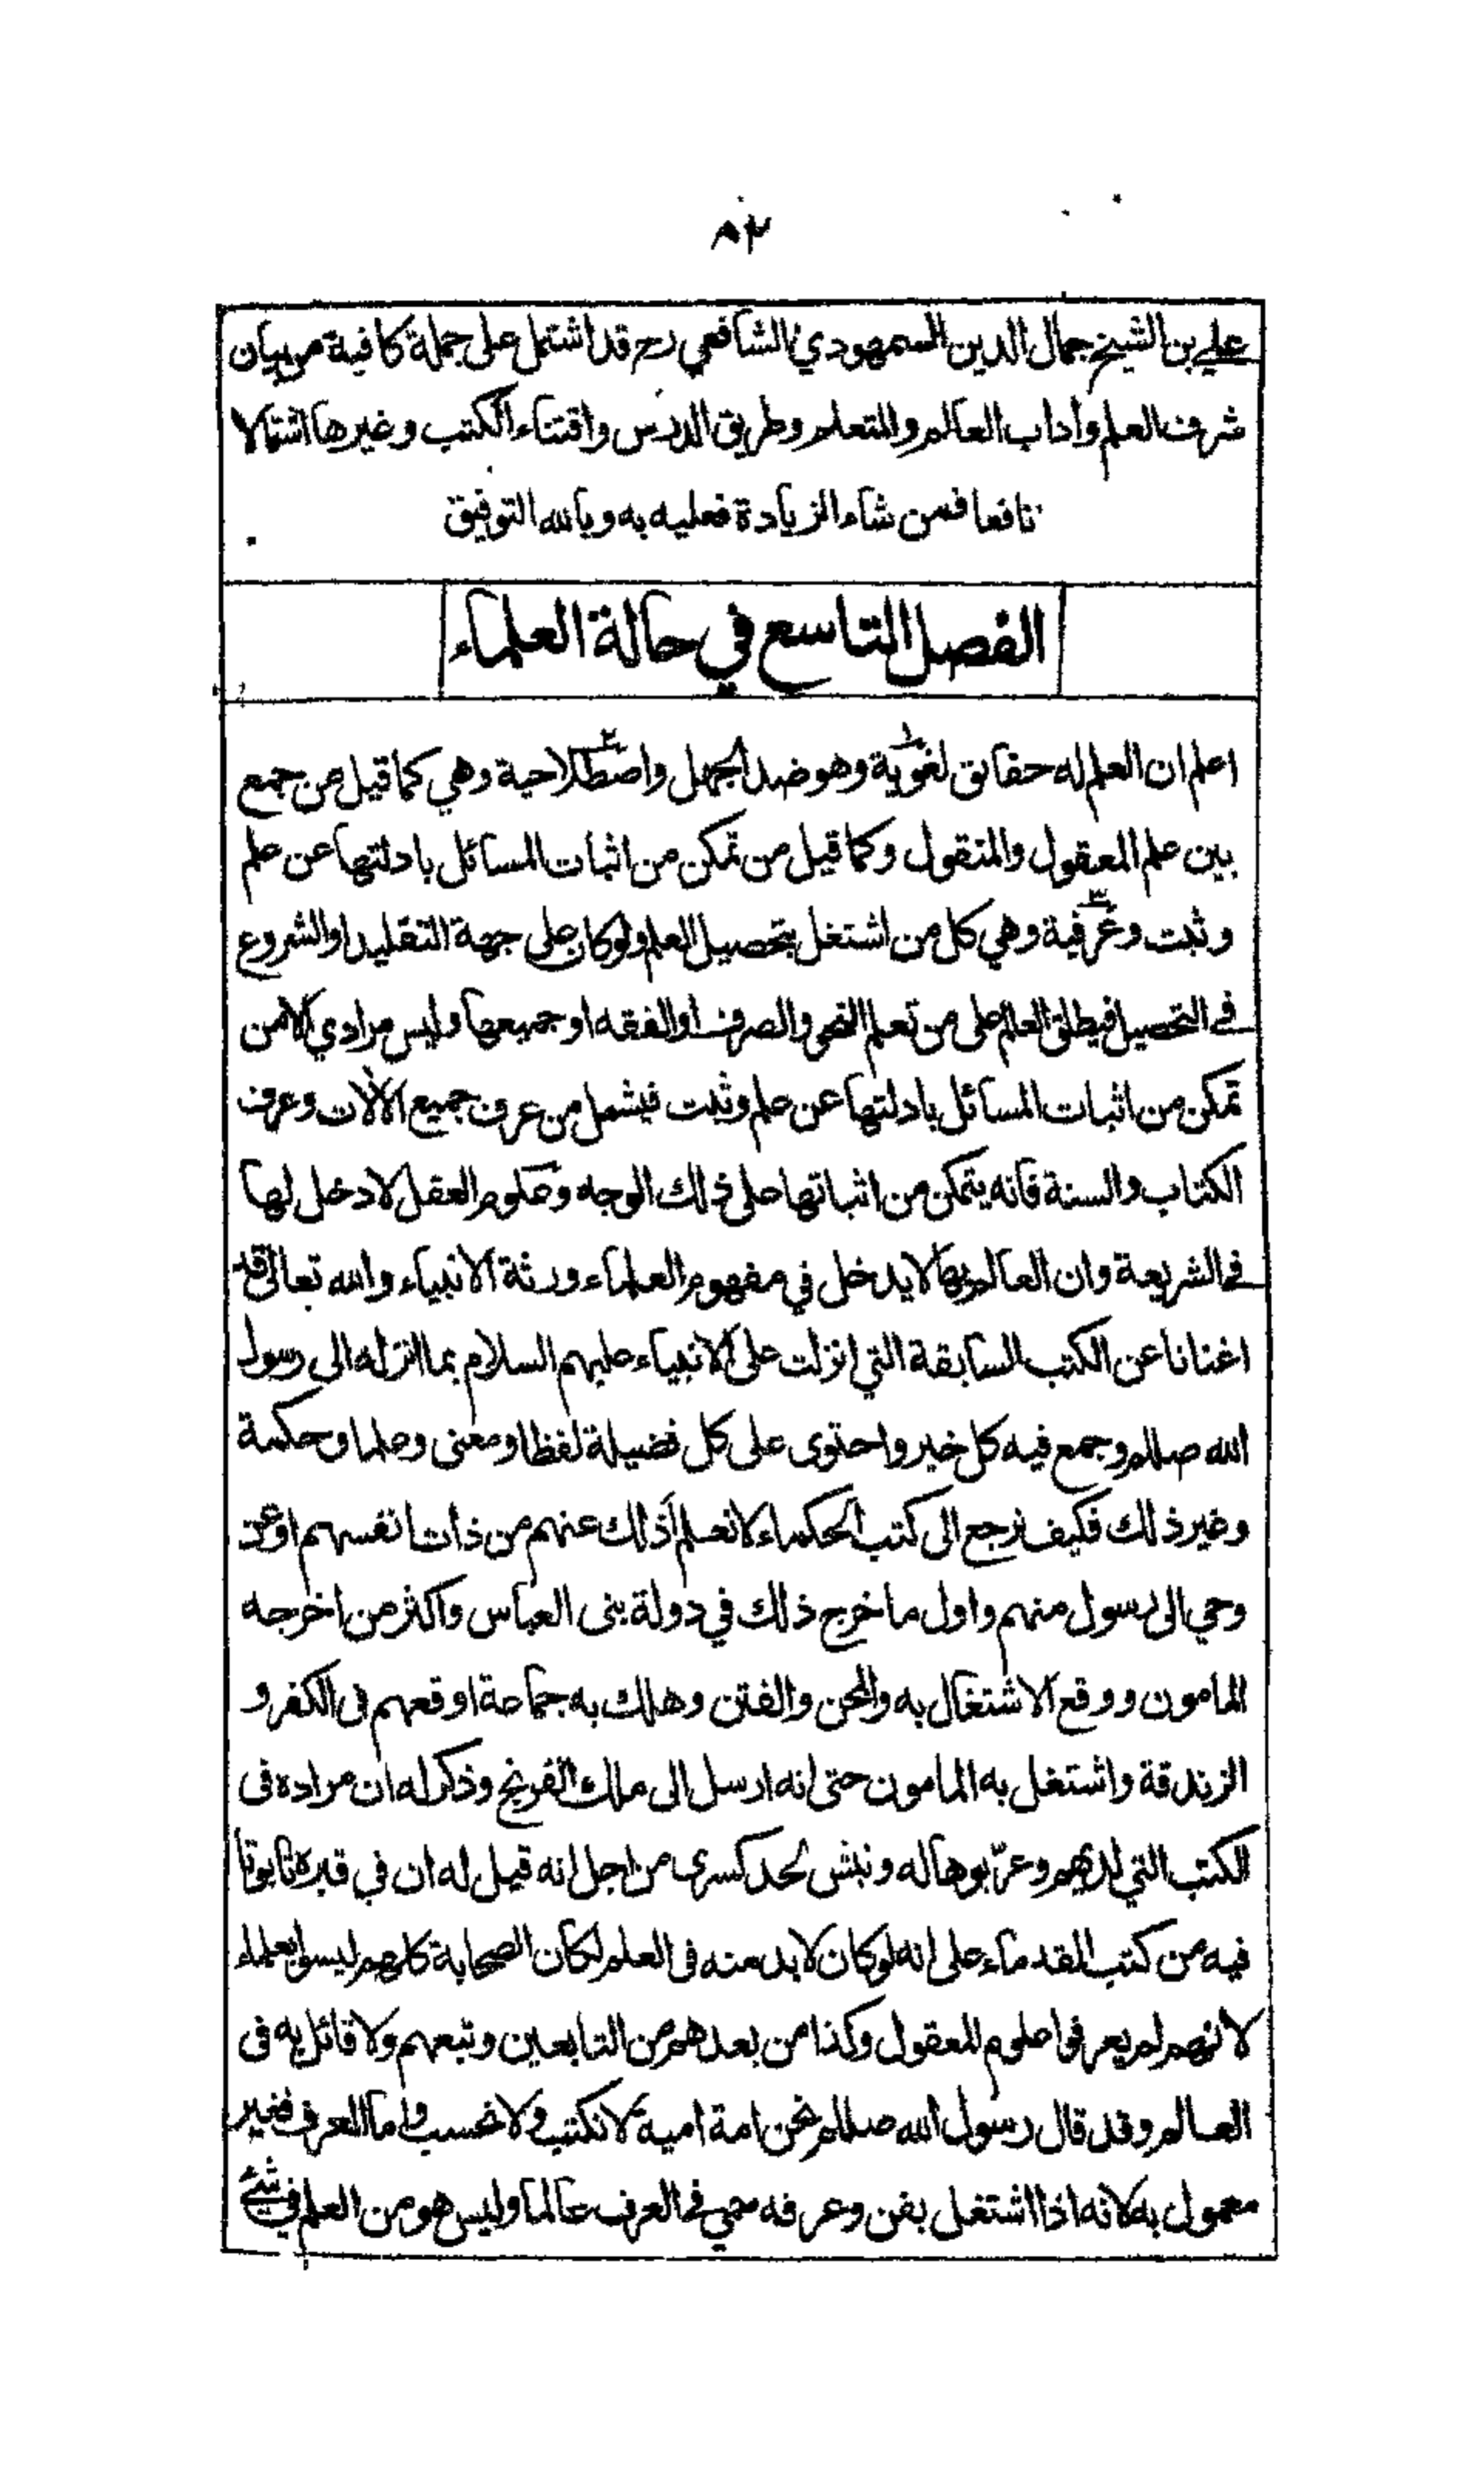 ٨٢
علي بن الشيخ جمال الدين السمهودي الشافعي رح قد اشتمل على جملة كافية من بيان
شرف العلم واداب العالم والمتعلم وطريق الدرس واقتناء الكتب وغيرها اشتمالا
نافعا فمن شاء الزيادة فعليه به وبالله التوفيق
الفصل التاسع في حالة العلماء
اعلم ان العلم له حقائق لغوية وهو ضد الجهل واصطلاحية وهي كما قيل من جمع
بين علم المعقول والمنقول وكما قيل من تمكن من اثبات المسائل بادلتها عن علم
وثبت وعرفية وهي كل من اشتغل بتحصيل العلم ولو كان على جهة التقليد او الشروع
في التحصيل فيطلق العلم على من تعلم النحو والصرف او الفقه او جميعها وليس مرادي الا من
تمكن من اثبات المسائل بادلتها عن علم وثبت فيشمل من عرف جميع الآلات وعرف
الكتاب والسنة فانه يتمكن من اثباتها على ذلك الوجه وعلوم العقل لا دخل لها
في الشريعة وان العالم بها لا يدخل في مفهوم العلماء ورثة الانبياء والله تعالى قد
اغنانا عن الكتب السابقة التي انزلت على الانبياء عليهم السلام بما انزله الى رسول
الله صللم وجمع فيه كل خير واحتوى على كل فضيلة لفظا ومعنى وعلما وحكمة
وغير ذلك فكيف نرجع الى كتب الحكماء لا نعلم أذلك عنهم من ذات انفسهم او عن
وحي الى رسول منهم واول ما خرج ذلك في دولة بنى العباس واكثر من اخرجه
المامون ووقع الاشتغال به والمحن والفتن وهلك به جماعة اوقعهم فى الكفر و
الزندقة واشتغل به المامون حتى انه ارسل الى ملك الفرنج وذكر له ان مراده فى
الكتب التي لديهم وعرّبوها له ونبش لحد كسرى من اجل انه قيل له ان في قبره تابوتا
فيه من كتب القدماء على انه لو كان لا بد منه فى العلم لكان الصحابة كلهم ليسوا بعلماء
لانهم لم يعرفوا علوم المعقول وكذا من بعدهم من التابعين وتبعهم ولا قائل به فى
العالم وقد قال رسول الله صللم نحن امة امية لا نكتب ولا نحسب واما العرف فغير
معمول به لانه اذا اشتغل بفن وعرفه سمي في العرف عالما وليس هو من العلم في شئ